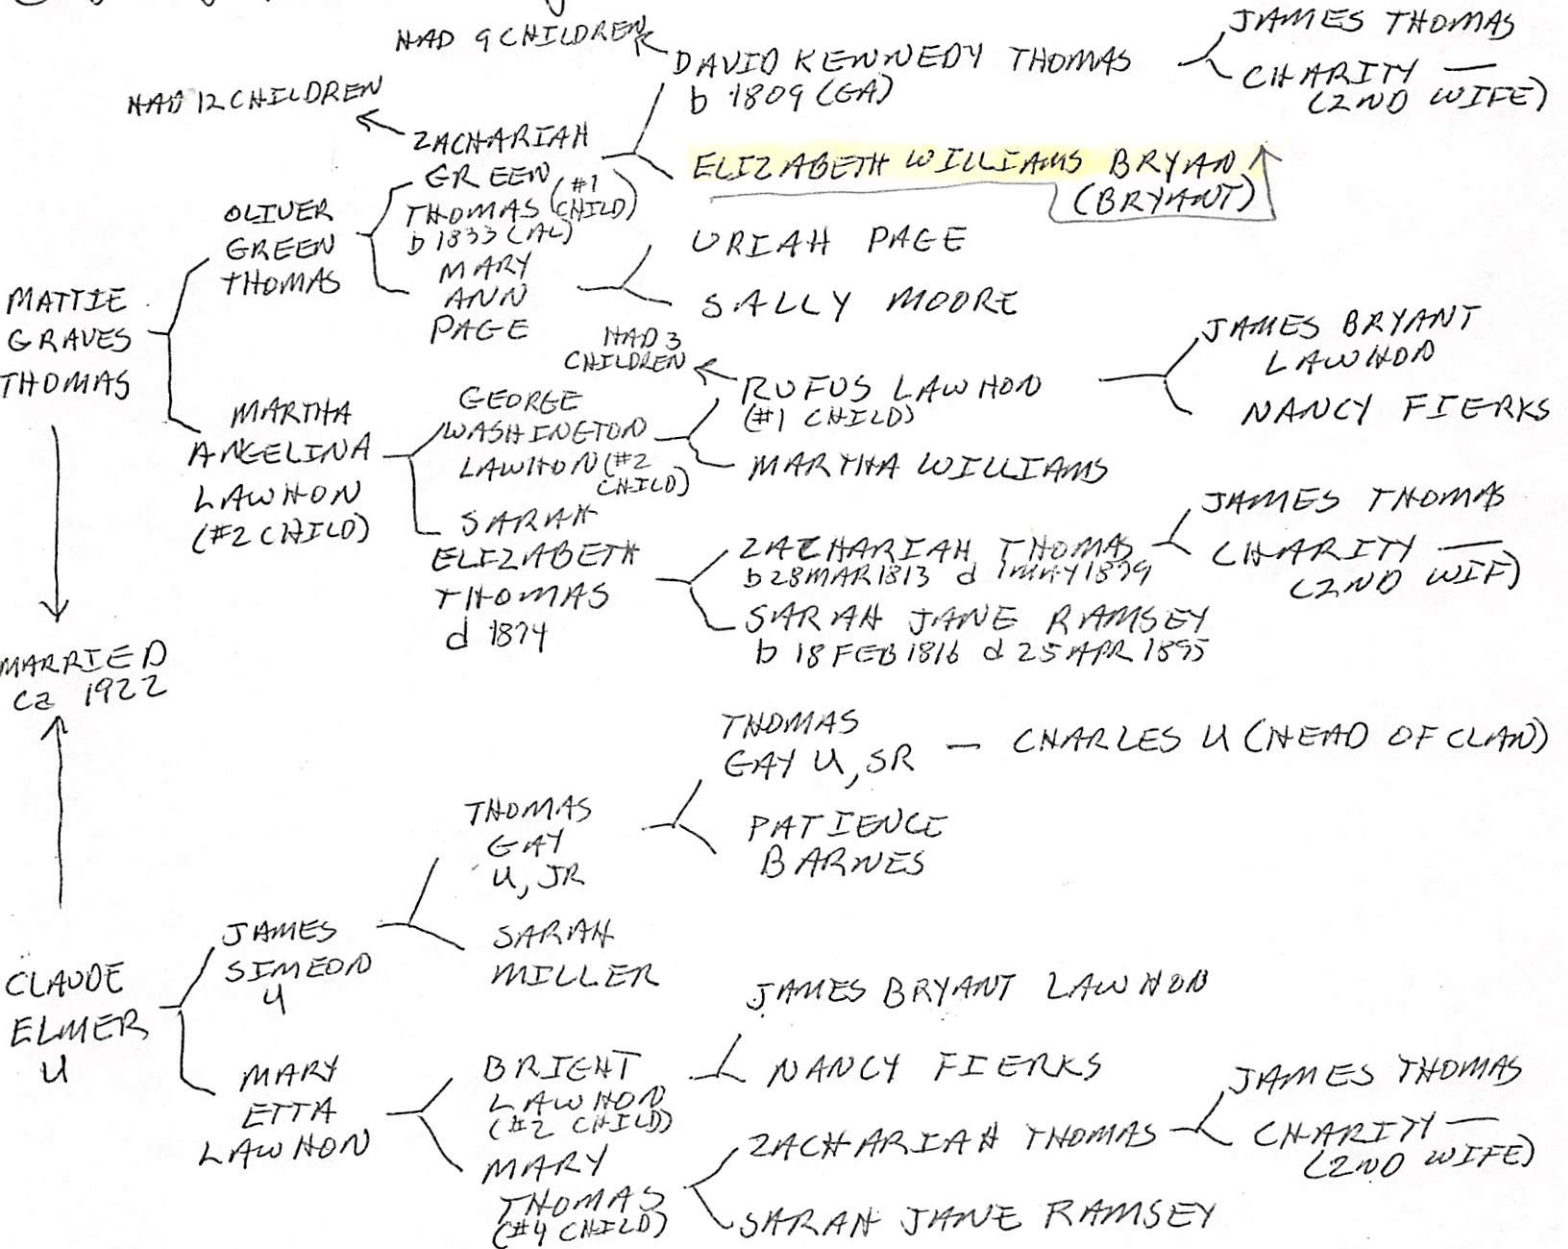 HAD 9 CHILDREN
DAVID KENNEDY THOMAS
b 1809 (GA)
JAMES THOMAS
CHARITY —
(2ND WIFE)
HAD 12 CHILDREN
ZACHARIAH
GREEN (#1
THOMAS CHILD)
b 1833 (AL)
ELIZABETH WILLIAMS BRYAN
(BRYANT)
OLIVER
GREEN
THOMAS
MARY
ANN
PAGE
URIAH PAGE
SALLY MOORE
MATTIE
GRAVES
THOMAS
HAD 3
CHILDREN
RUFUS LAWHON
(#1 CHILD)
JAMES BRYANT
LAWHON
NANCY FIERKS
MARTHA
ANGELINA
LAWHON
(#2 CHILD)
GEORGE
WASHINGTON
LAWHON (#2
CHILD)
MARTHA WILLIAMS
SARAH
ELIZABETH
THOMAS
d 1874
ZACHARIAH THOMAS
b 28 MAR 1813 d 1 MAY 1899
JAMES THOMAS
CHARITY —
(2ND WIF)
SARAH JANE RAMSEY
b 18 FEB 1816 d 25 APR 1895
MARRIED
ca 1922
THOMAS
GAY U, SR — CHARLES U (HEAD OF CLAN)
THOMAS
GAY
U, JR
PATIENCE
BARNES
JAMES
SIMEON
U
SARAH
MILLER
CLAUDE
ELMER
U
MARY
ETTA
LAWHON
BRIGHT
LAWHON
(#2 CHILD)
JAMES BRYANT LAWHON
NANCY FIERKS
MARY
THOMAS
(#4 CHILD)
ZACHARIAH THOMAS
JAMES THOMAS
CHARITY —
(2ND WIFE)
SARAH JANE RAMSEY